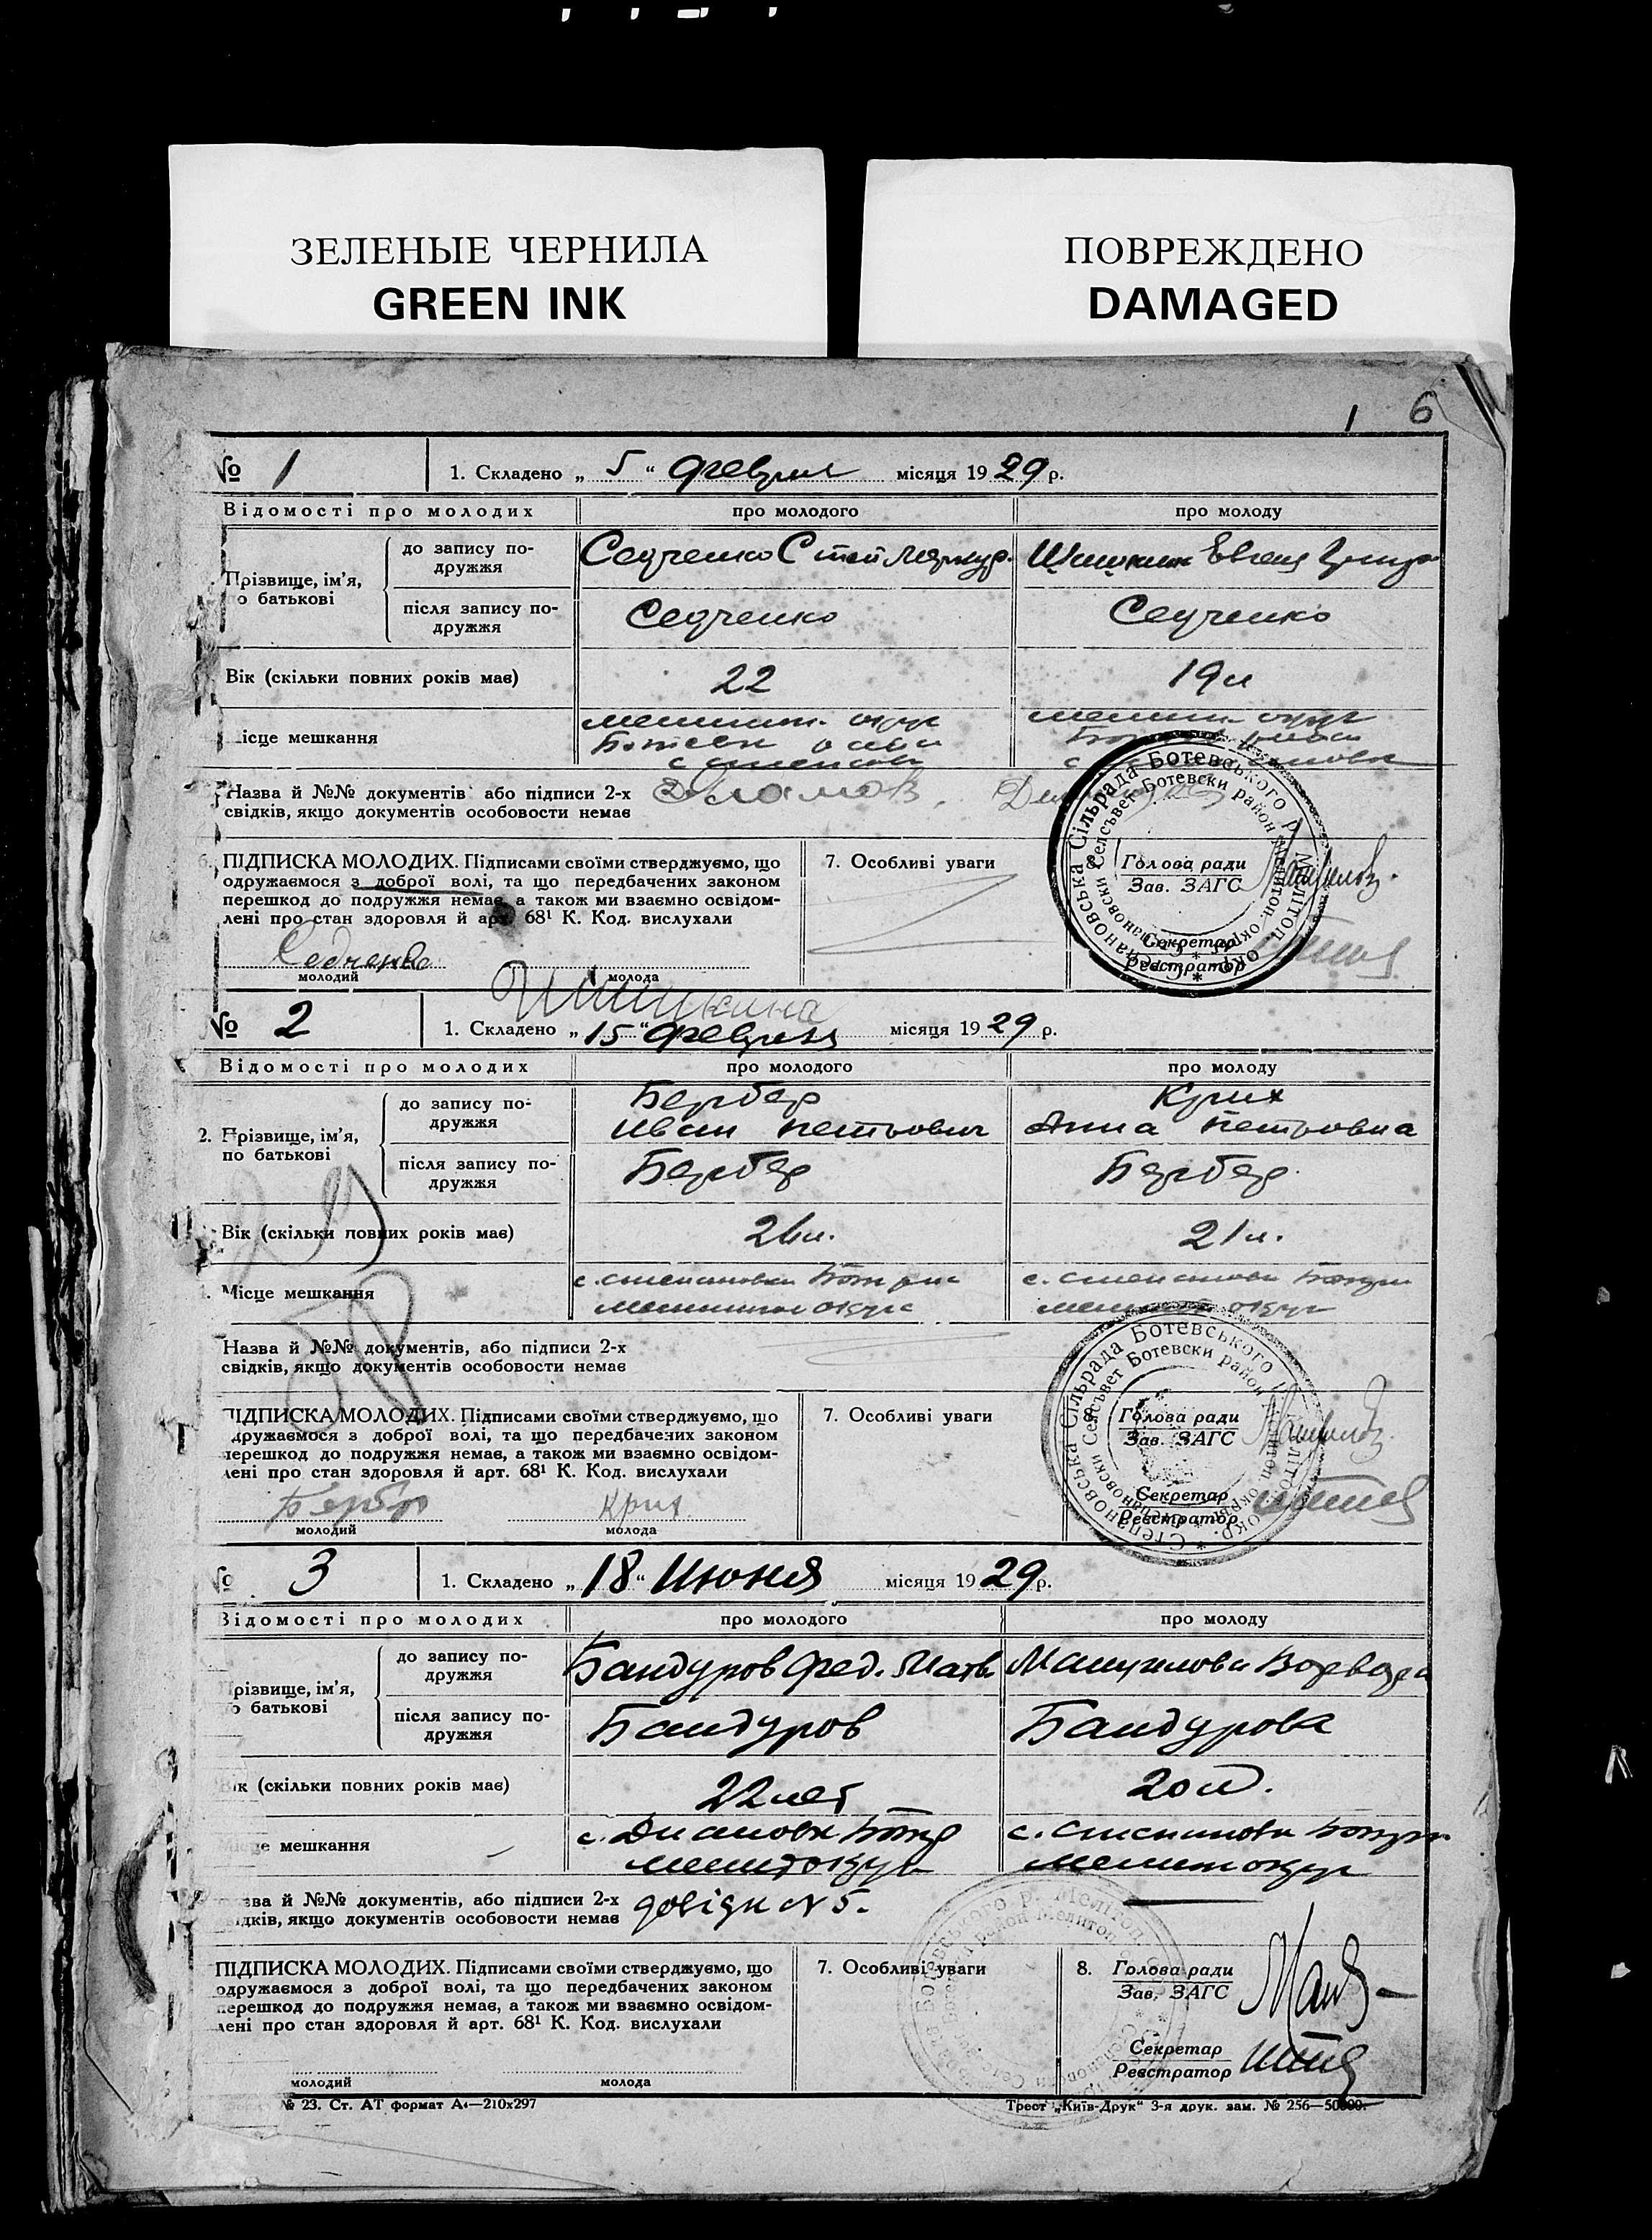 ЗЕЛЕНЫЕ ЧЕРНИЛА
GREEN INK
ПОВРЕЖДЕНО
DAMAGED
1 6
№ 1
1. Складено „ 5 “ февраля місяця 1929 р.
Відомості про молодих
про молодого
про молоду
Прізвище, ім’я,
до запису по-
дружжя
по батькові
після запису по-
дружжя
Седченко
Седченко
Вік (скільки повних років має)
22
19 л
Місце мешкання
Назва й №№ документів або підписи 2-х
свідків, якщо документів особовости немає
ПІДПИСКА МОЛОДИХ. Підписами своїми стверджуємо, що
одружаємося з доброї волі, та що передбачених законом
перешкод до подружжя немає, а також ми взаємно освідом-
лені про стан здоровля й арт. 68¹ К. Код. вислухали
7. Особливі уваги
Голова ради
Зав. ЗАГС
Секретар
Реєстратор
Седченко
молодий
Шишкина
молода
Степановська Сільрада Ботевського р. Мелітоп. окр.
Степановски Селсъвет Ботевски район Мелитоп. окръг
№ 2
1. Складено „ 15 “ февраля місяця 1929 р.
Відомості про молодих
про молодого
про молоду
2. Прізвище, ім’я,
по батькові
до запису по-
дружжя
Бербер
Иван Петрович
Крих
Анна Петровна
після запису по-
дружжя
Бербер
Бербер
Вік (скільки повних років має)
21 л.
Місце мешкання
Назва й №№ документів, або підписи 2-х
свідків, якщо документів особовости немає
ПІДПИСКА МОЛОДИХ. Підписами своїми стверджуємо, що
одружаємося з доброї волі, та що передбачених законом
перешкод до подружжя немає, а також ми взаємно освідом-
лені про стан здоровля й арт. 68¹ К. Код. вислухали
7. Особливі уваги
8. Голова ради
Зав. ЗАГС
Секретар
Реєстратор
Бербер
молодий
Крих
молода
Степановська Сільрада Ботевського р. Мелітоп. окр.
Степановски Селсъвет Ботевски район Мелитоп. окръг
№ 3
1. Складено „ 18 “ Июня місяця 1929 р.
Відомості про молодих
про молодого
про молоду
Прізвище, ім’я,
по батькові
до запису по-
дружжя
Бандуров Фед. Матв.
Мануилова
після запису по-
дружжя
Бандуров
Бандурова
Вік (скільки повних років має)
22 лет
20 л.
Місце мешкання
с. Диановк
с. Степановк
Назва й №№ документів, або підписи 2-х
свідків, якщо документів особовости немає
довідк N 5.
ПІДПИСКА МОЛОДИХ. Підписами своїми стверджуємо, що
одружаємося з доброї волі, та що передбачених законом
перешкод до подружжя немає, а також ми взаємно освідом-
лені про стан здоровля й арт. 68¹ К. Код. вислухали
7. Особливі уваги
8. Голова ради
Зав. ЗАГС
Секретар
Реєстратор
молодий
молода
№ 23. Ст. АТ формат А4—210х297
Трест „Київ-Друк“ 3-я друк. зам. № 256—50000.